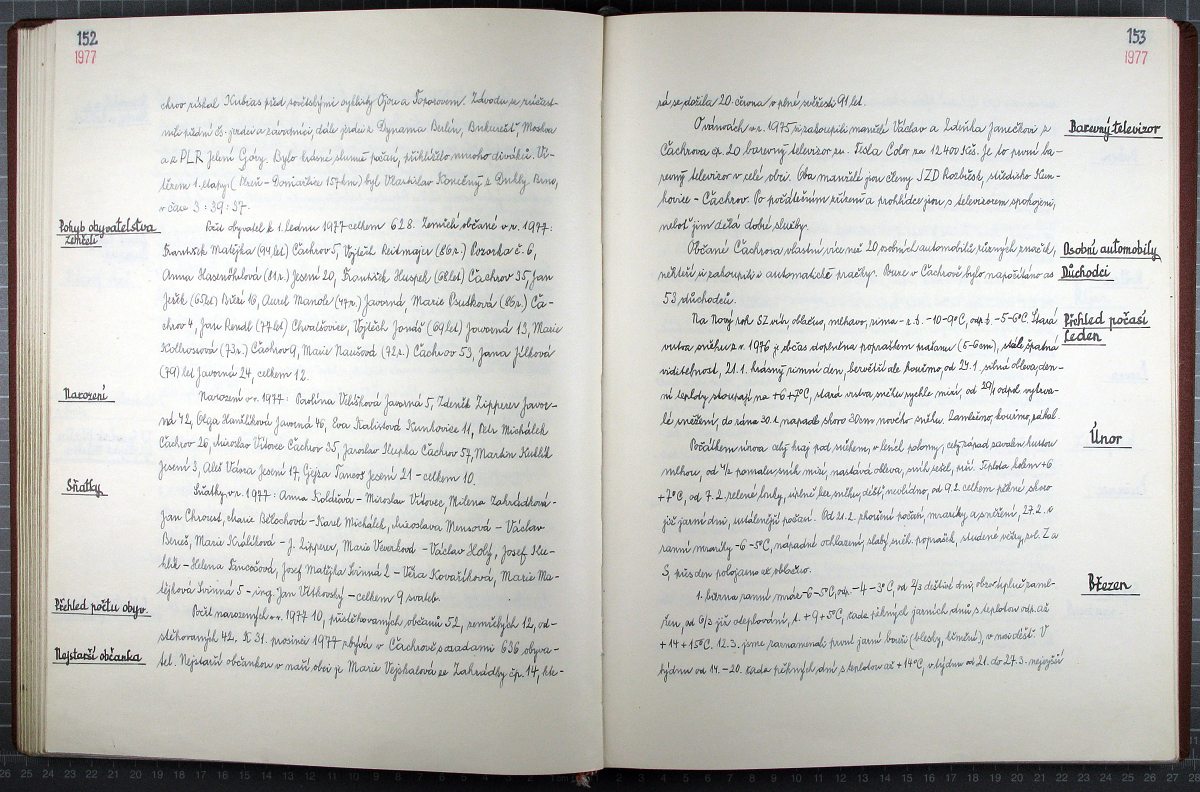 152
1977
chrov získal Kubias před sovětskými cyklisty Ojou a Toporovem. Závodu se zúčast-
nili přední čs. jezdci a závodníci, dále jezdci z Dynama Berlín, Bukurešť, Moskva
a z PLR Jelení Góry. Bylo krásné slunné počasí, přihlíželo mnoho diváků. Ví-
tězem 1. etapy (Plzeň - Domažlice 157 km) byl Vlastislav Konečný z Dukly Brno,
v čase 3:39:37.
Pohyb obyvatelstva
Zemřelí
Počet obyvatel k 1. lednu 1977 celkem 628. Zemřelí občané v r. 1977:
František Matějka (94 let) Čáchrov 5, Vojtěch Reitmajer (86 r.) Kozarka č. 6,
Anna Hasenöhrlová (81 r.) Jesení 20, František Huspek (68 let) Čáchrov 35, Jan
Ježek (65 let) Bráží 16, Aurel Manole (47 r.) Javorná, Marie Psutková (86 r.) Čá-
chrov 4, Jan Rendl (77 let) Chvalšovice, Vojtěch Jonáš (69 let) Javorná 13, Marie
Kolbrosová (73 r.) Čáchrov 9, Marie Naušová (72 r.) Čáchrov 53, Jana Jílková
(79) let Javorná 24, celkem 12.
Narození
Narození v r. 1977: Pavlína Velíšková Javorná 5, Zdeněk Zipperer Javor-
ná 42, Olga Hanzlíková Javorná 46, Eva Kalistová Kunkovice 11, Petr Michálek
Čáchrov 26, Miroslav Vítovec Čáchrov 35, Jaroslav Slupka Čáchrov 57, Martin Kuklík
Jesení 3, Aleš Vávra Jesení 17, Gejza Tancos Jesení 21 - celkem 10.
Sňatky
Sňatky v r. 1977: Anna Koldová - Miroslav Vítovec, Milena Zahrádková -
Jan Chroust, Marie Bělochová - Karel Michálek, Miroslava Mensová - Václav
Beneš, Marie Králíková - J. Zipperer, Marie Veverková - Václav Holý, Josef Ku-
klík - Helena Fencošová, Josef Matějka Svinná 2 - Věra Kovaříková, Marie Ma-
tějková Svinná 5 - ing. Jan Vítkovský - celkem 9 svateb.
Přehled počtu obyv.
Počet narozených v r. 1977 10, přistěhovaných občanů 52, zemřelých 12, od-
stěhovaných 42. K 31. prosinci 1977 zbývá v Čáchrově s osadami 636 obyva-
Nejstarší občanka
tel. Nejstarší občankou v naší obci je Marie Vejskalová ze Zahrádky čp. 14, kte-
153
1977
rá se dožila 20. června v plné svěžesti 91 let.
Barevný televizor
O vánocích v r. 1975 si zakoupili manželé Václav a Zdeňka Janečkovi z
Čáchrova čp. 20 barevný televizor zn. Tesla Color za 12.400 Kčs. Je to první ba-
revný televizor v celé obci. Oba manželé jsou členy JZD Rozběžsk, středisko Kun-
kovice - Čáchrov. Po počátečním seřízení a prohlídce jsou s televizorem spokojeni,
neboť jim dělá dobré služby.
Osobní automobily
Občané Čáchrova vlastní více než 20 osobních automobilů různých značek,
Důchodci
někteří si zakoupili i automatické pračky. Pouze v Čáchrově bylo napočítáno as
53 důchodců.
Přehled počasí
Leden
Na Nový rok SZ vítr, oblačno, mlhavo, zima - r. t. -10-9°C, odp. t. -5-6°C. Stará
vrstva sněhu z r. 1976 je občas doplněna popraškem prašanu (5-6 cm), stále špatná
viditelnost, 21.1. krásný zimní den, bezvětří ale kouřmo, od 24.1. silná obleva, den-
ní teploty stoupají na +6+7°C, stará vrstva sněhu rychle mizí, od 29/1 odpol. vytrva-
lé sněžení, do rána 30.1. napadlo skoro 30 cm nového sněhu. Zamlženo, kouřmo, zákal.
Únor
Počátkem února celý kraj pod sněhem, v lesích polomy, celý západ zavalen hustou
mlhou, od 4/2 pomalu sníh mizí, nastává obleva, sníh sešel, prší. Teplota kolem +6
+7°C, od 7.2. zelené louky, úplně bez sněhu, déšť, neoblidno, od 9.2. celkem pěkné skoro
již jarní dni, ustálenější počasí. Od 21.2. zhoršení počasí, mrazíky a sněžení, 27.2. a
ranní mrazíky -6-5°C, nápadné ochlazení, slabý sněh. poprašek, studené větry, svl. Z a
S, přes den polojasno až oblačno.
Březen
1. března ranní mráz -6-5°C, odp. -4-3°C, od 4/3 deštivé dni, obzor úplně zaml-
žen, od 6/3 již oteplování, t. +9+5°C, řada pěkných jarních dnů s teplotou odp. až
+14+15°C. 12.3. jsme zaznamenali první jarní bouři (blesky, hřmění), v noci déšť. V
týdnu od 14.-20. řada pěkných dní s teplotou až +14°C, v týdnu od 21. do 27.3. nejvyšší